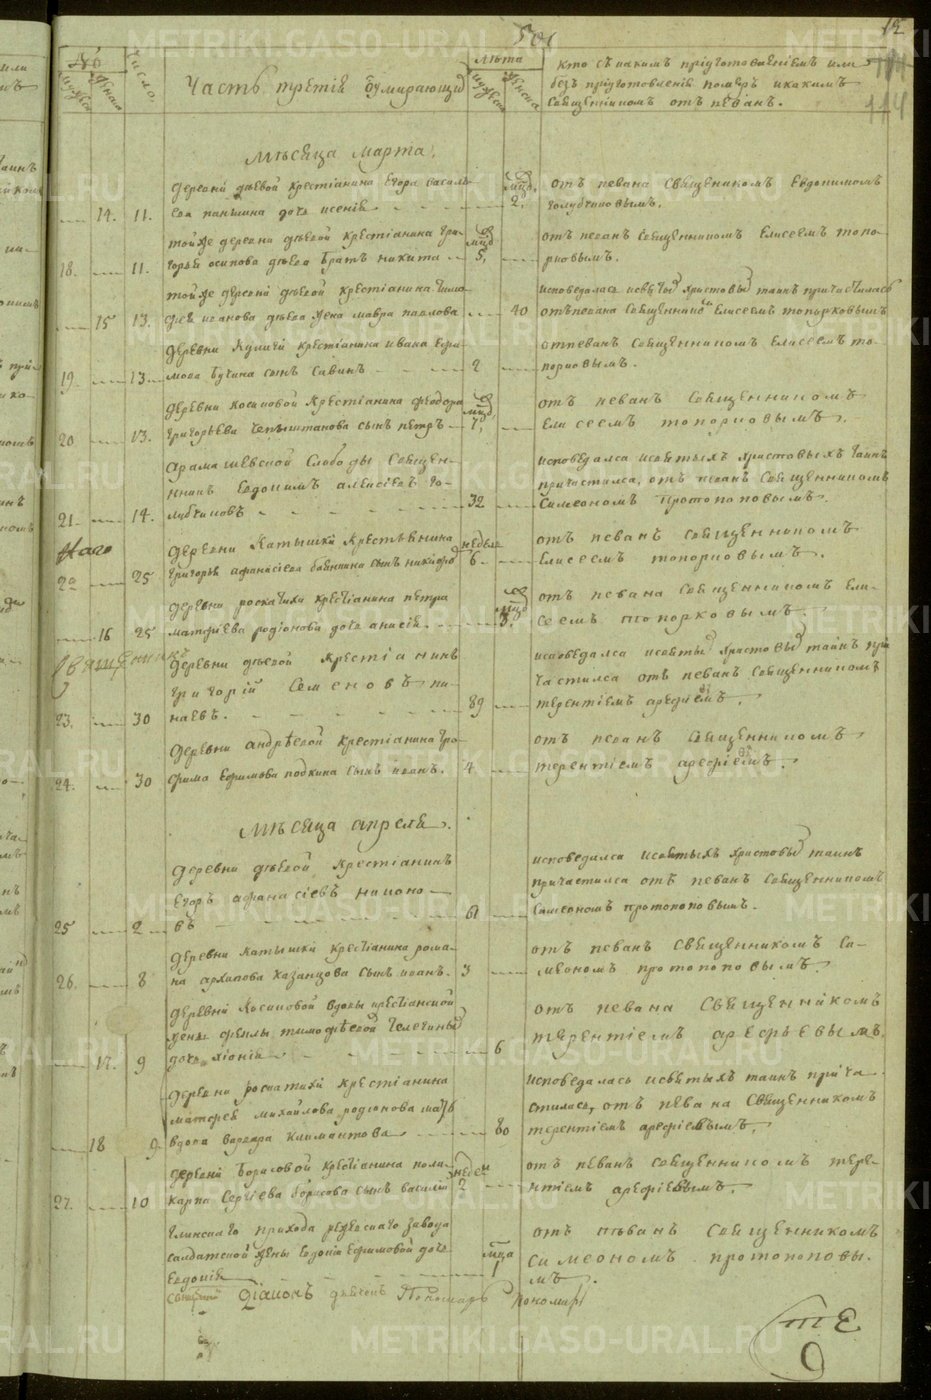 501
15
114
№
число
лѣта
мужеска
женска
Часть третія ѡумирающих
мужеска
женска
кто съ какимъ пріуготовленіемъ или
безъ пріуготовленія померъ и какимъ
священникомъ отъ пѣванъ.
Мѣсяца марта.
деревни дѣевой крестіанина Егора василь-
ева паньшина дочь ксенія
14. 11.
мцов
2.
отъ певана священикомъ Евдокимомъ
голубчиковымъ.
тойже деревни дѣевой крестіанина гри-
горья осипова дѣева братъ никита
18. 11.
мцов
5.
отъ певанъ священникомъ Елисеемъ топо-
рковымъ.
тойже деревни дѣевой крестіанина
иванова дѣева жена мавра павлова
15 13.
40
исповедалась исвятых христовых таинъ причастилась
отъпевана священникомъ Елисеемъ топорковымъ
деревни Кулиги крестіанина ивана Ерм-
олова бучина сынъ савинъ
19. 13
2
отпеванъ священникомъ елисеемъ то-
порковымъ.
деревни косиковой крестіанина феодора
григорьева сынъ петръ
20 13.
мцов
7,
отъ певанъ священникомъ
елисеемъ топорковымъ.
арамашевской слободы священ-
никъ Евдокимъ алексѣевъ го-
лубчиковъ
21 14.
32
исповедался исвятыхъ христовыхъ таинъ
причастился, отъ певанъ священникомъ
симеономъ протопоповымъ.
деревни Катышки крестьянина
григорья афанасіева сынъ никифоръ
22 25
недели
6
отъ певанъ священникомъ
елисеемъ топорковымъ.
деревни роскатихи крестіанина петра
матфіева родіонова дочь анисія
16 25
мцов
3.
отъ певана священникомъ ели-
сеемъ топорковымъ.
деревни дѣевой крестіанинъ
григорій семеновъ па-
наевъ.
23. 30
89
исповедался исвятых христовых таинъ при
частился отъ певанъ священникомъ
терентіемъ арефіевымъ.
деревни андрѣевой крестіанина тро-
фима Ефимова подкина сынъ иванъ.
24. 30
4
отъ певанъ священникомъ
терентіемъ арефіевымъ.
Мѣсяца апреля.
деревни дѣевой крестіанинъ
Егоръ афанасіевъ никоно-
въ
25 2
61
исповедался исвятыхъ христовых таинъ
причастился отъ певанъ священникомъ
симеономъ протопоповымъ.
деревни катышки крестіанина рома-
на архипова казанцова сынъ иванъ.
26. 8
3
отъ певанъ священникомъ си-
меономъ протопоповымъ.
деревни косиковой вдовы крестіанской
жены феклы тимофѣевой
дочь хіонія
17. 9
6
отъ певана священникомъ
терентіемъ арефьевымъ.
деревни роскатихи крестіанина
матфея михайлова родіонова мать
вдова варвара климантова
18 9
80
исповедалась исвятыхъ таинъ прича
стилась, отъ певана священикомъ
терентіемъ арефіевымъ.
деревни борисовой крестіанина поли-
карпа сергіева борисова сынъ василій
27. 10
недел
2
отъ певанъ священникомъ тере-
нтіемъ арефіевымъ.
глинскаго прихода режевскаго завода
салдатской жены Евдокіи Ефимовой дочь
Евдокія
мца
1
отъ пѣванъ священникомъ
симеономъ протопоповы-
мъ.
діаконъ дьячекъ Пономарь